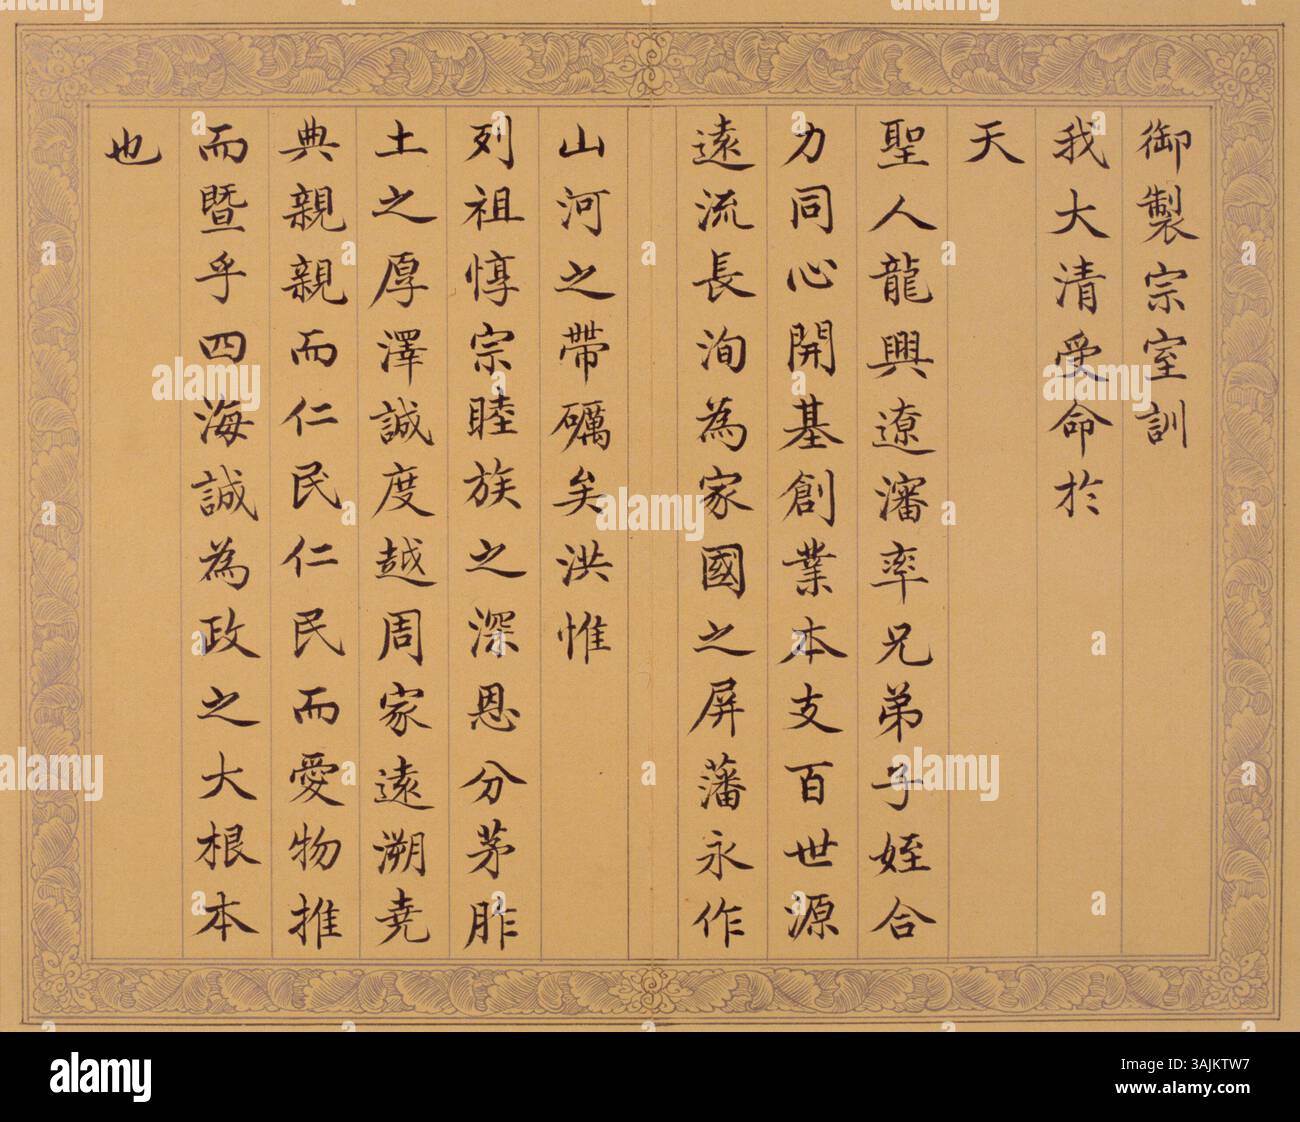 御製宗室訓
我大清受命於
天
聖人龍興遼瀋率兄弟子姪合
力同心開基創業本支百世源
遠流長洵為家國之屏藩永作
山河之帶礪矣洪惟
列祖惇宗睦族之深恩分茅胙
土之厚澤誠度越周家遠溯堯
典親親而仁民仁民而愛物推
而暨乎四海誠為政之大根本
也
alamy
Image ID: 3AJKTW7
www.alamy.com